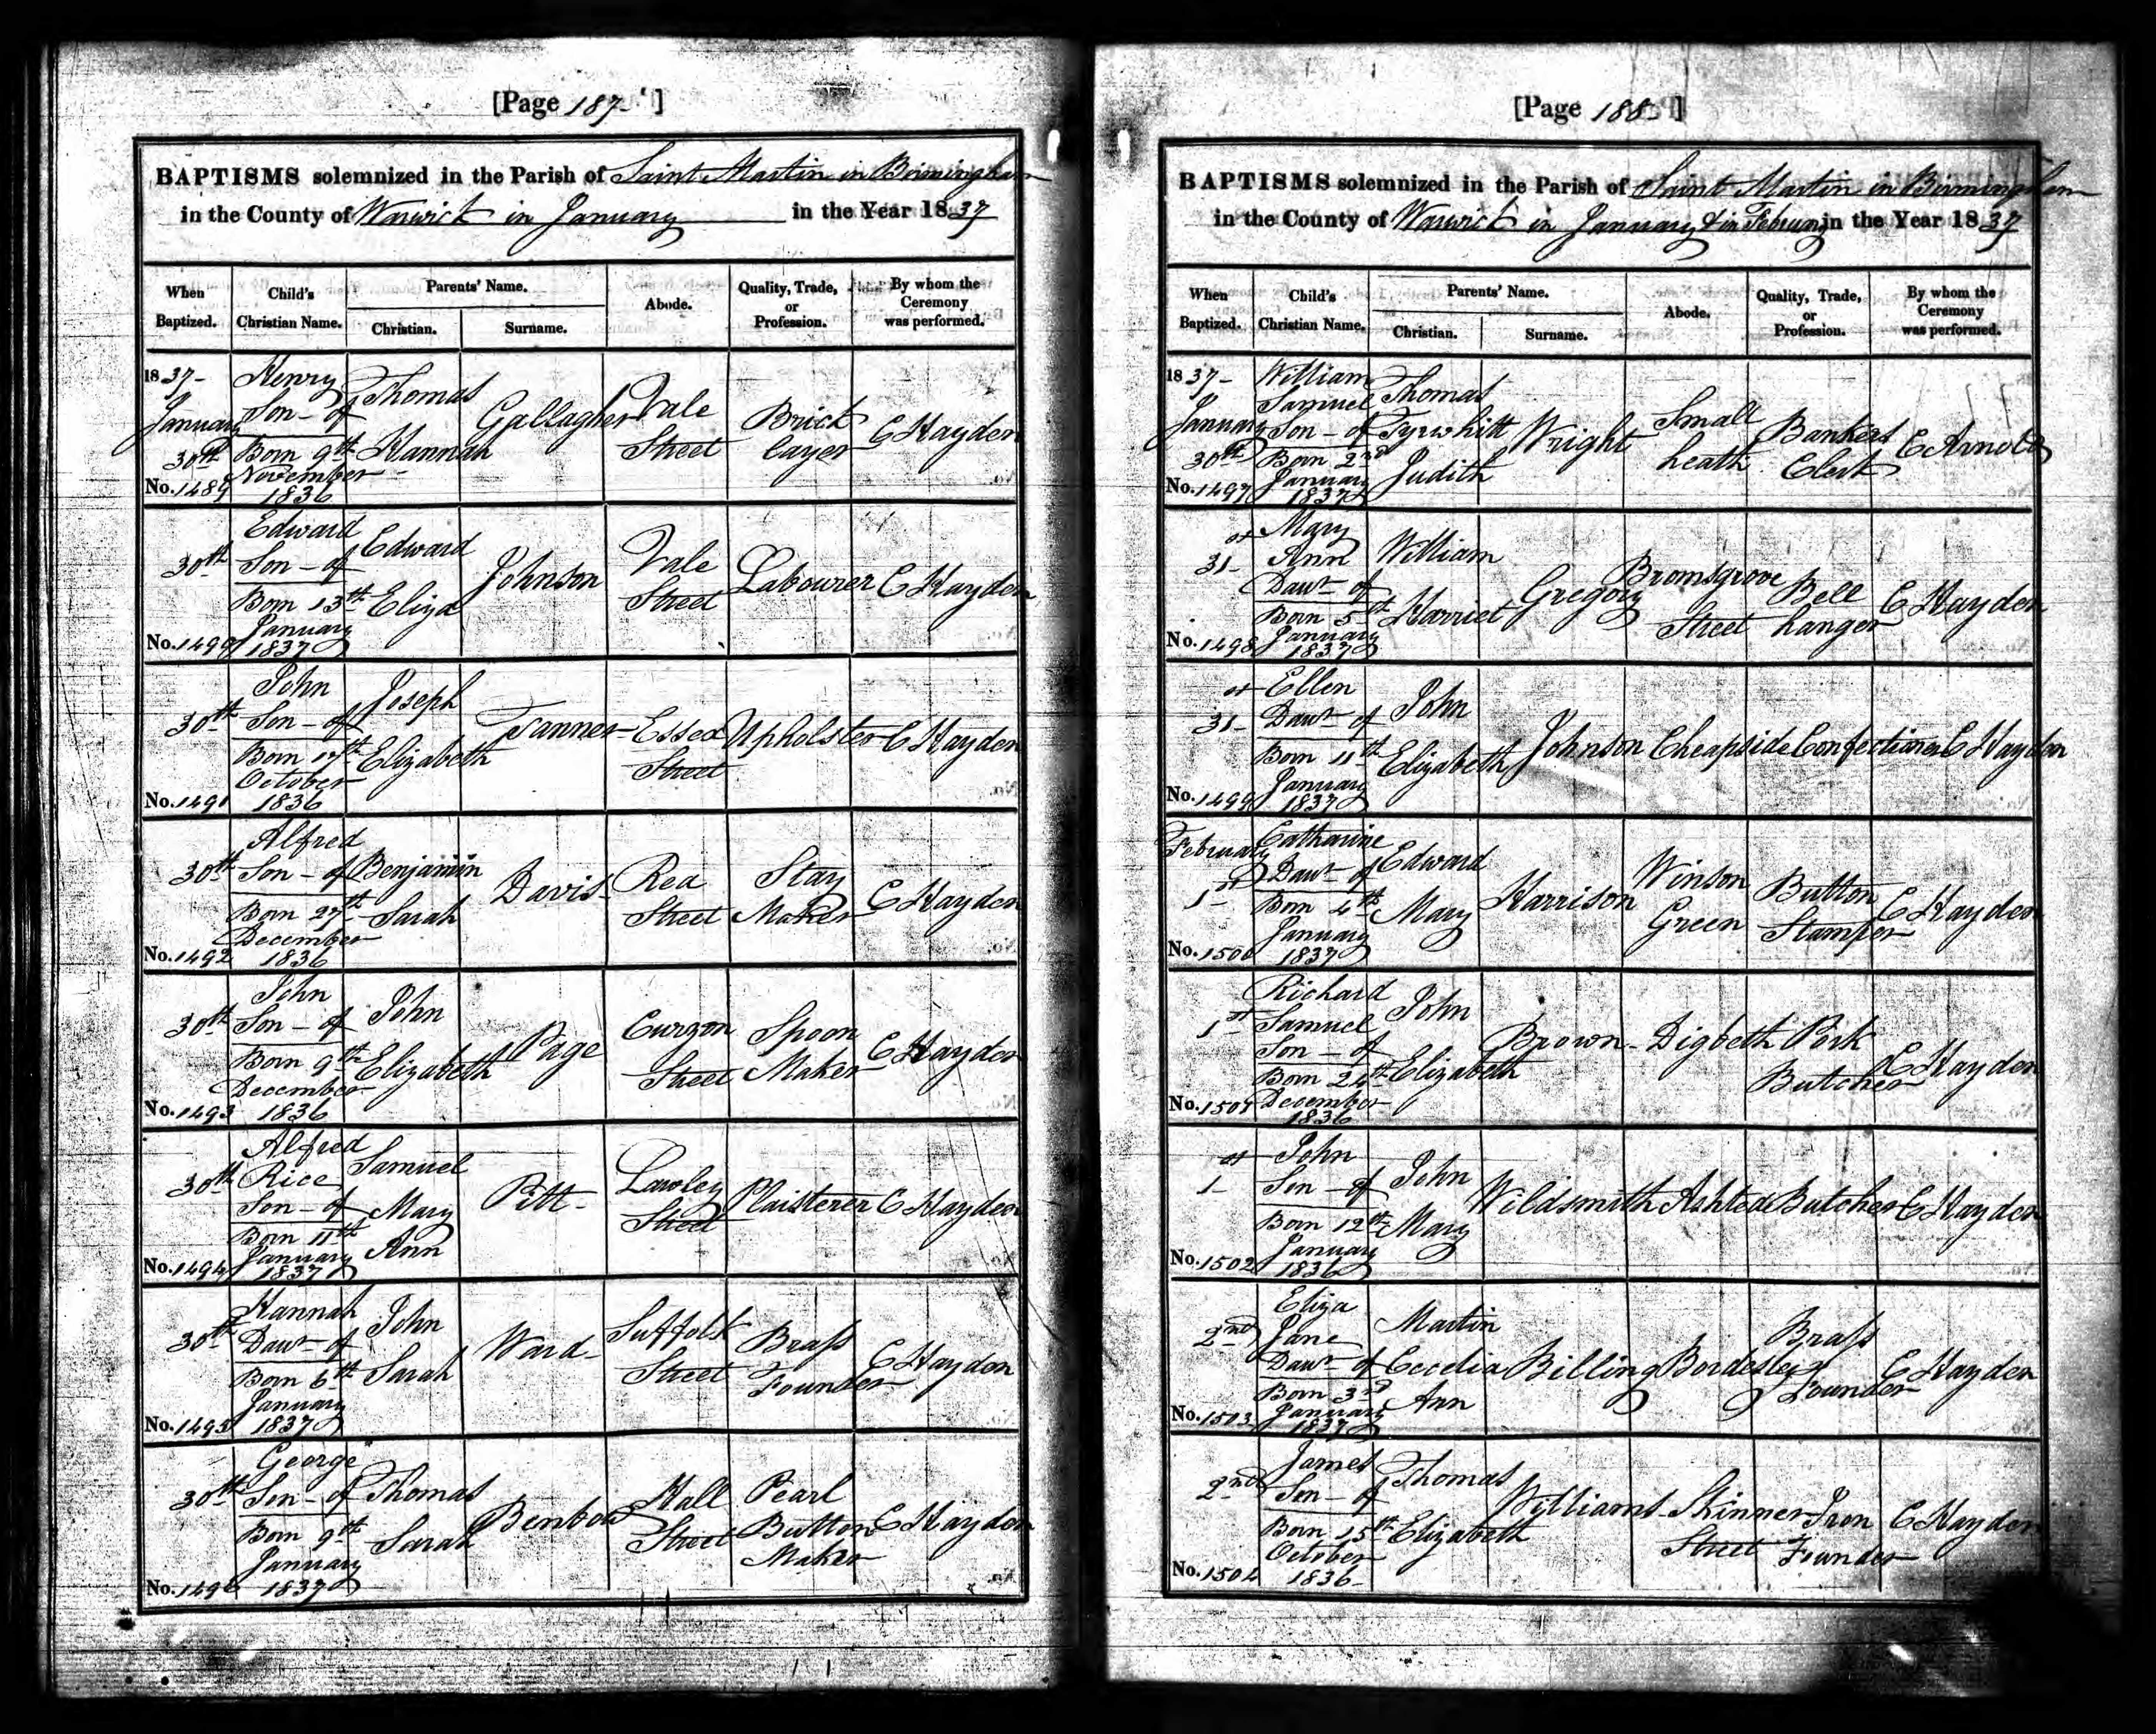 [Page 187]
BAPTISMS solemnized in the Parish of Saint Martin in Birmingham
in the County of Warwick in January in the Year 1837
When Baptized.
Child's Christian Name.
Parents' Name.
Christian.
Surname.
Abode.
Quality, Trade, or Profession.
By whom the Ceremony was performed.
1837 January 30th No. 1489
Henry Son of Born 9th November 1836
Thomas Hannah
Gallagher
Vale Street
Brick layer
C Hayden
30th No. 1490
Edward Son of Born 13th January 1837
Edward Eliza
Johnson
Vale Street
Labourer
C Hayden
30th No. 1491
John Son of Born 17th October 1836
Joseph Elizabeth
Tanner
Essex Street
Upholster
C Hayden
30th No. 1492
Alfred Son of Born 27th December 1836
Benjamin Sarah
Davis
Rea Street
Stay Maker
C Hayden
30th No. 1493
John Son of Born 9th December 1836
John Elizabeth
Page
Curzon Street
Spoon Maker
C Hayden
30th No. 1494
Alfred Rice Son of Born 11th January 1837
Samuel Mary Ann
Pitt
Lawley Street
Plaisterer
C Hayden
30th No. 1495
Hannah Daur of Born 6th January 1837
John Sarah
Ward
Suffolk Street
Brass Founder
C Hayden
30th No. 1496
George Son of Born 9th January 1837
Thomas Sarah
Benbow
Hall Street
Pearl Button Maker
C Hayden
[Page 188]
BAPTISMS solemnized in the Parish of Saint Martin in Birmingham
in the County of Warwick in January & in February in the Year 1837
When Baptized.
Child's Christian Name.
Parents' Name.
Christian.
Surname.
Abode.
Quality, Trade, or Profession.
By whom the Ceremony was performed.
1837 January 30th No. 1497
William Samuel Son of Born 2nd January 1837
Thomas Tyrwhitt Judith
Wright
Small heath
Bankers Clerk
C Arnold
31st No. 1498
Mary Ann Daur of Born 5th January 1837
William Harriet
Gregory
Bromsgrove Street
Bell hanger
C Hayden
31st No. 1499
Ellen Daur of Born 11th January 1837
John Elizabeth
Johnson
Cheapside
Confectioner
C Hayden
February 1st No. 1500
Catharine Daur of Born 4th January 1837
Edward Mary
Harrison
Winson Green
Button Stamper
C Hayden
1st No. 1501
Richard Samuel Son of Born 24th December 1836
John Elizabeth
Brown
Digbeth
Pork Butcher
C Hayden
1st No. 1502
John Son of Born 12th January 1836
John Mary
Wildsmith
Ashted
Butcher
C Hayden
2nd No. 1503
Eliza Jane Daur of Born 3rd January 1837
Martin Cecelia Ann
Billing
Bordesley
Brass Founder
C Hayden
2nd No. 1504
James Son of Born 15th October 1836
Thomas Elizabeth
Williams
Skinner Street
Iron Founder
C Hayden